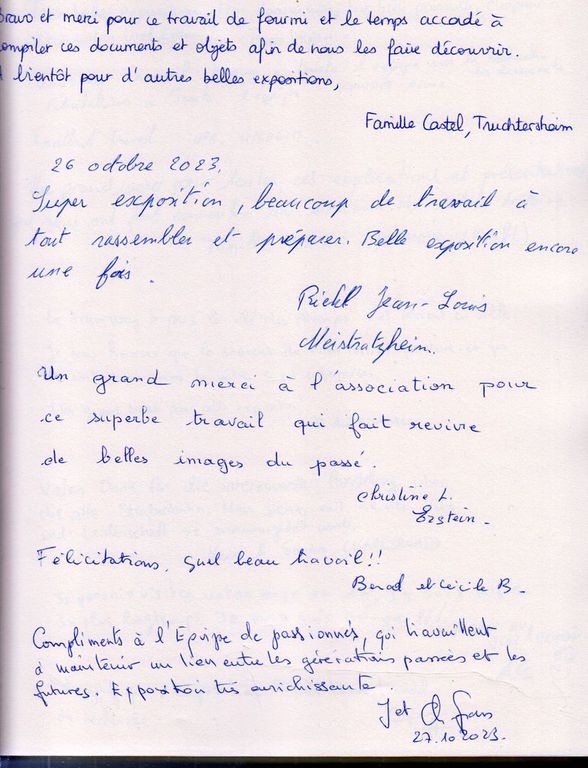 Bravo et merci pour ce travail de fourmi et le temps accordé à
compiler ces documents et objets afin de nous les faire découvrir.
A bientôt pour d'autres belles expositions,
Famille Castel, Truchtersheim
26 octobre 2023.
Super exposition, beaucoup de travail à
tout rassembler et préparer. Belle exposition encore
une fois.
Jean-Louis
Meistratzheim.
Un grand merci à l'association pour
ce superbe travail qui fait revivre
de belles images du passé.
Christine L.
Erstein.
Félicitations, quel beau travail!!
et Cécile B.
Compliments à l'Equipe de passionnés, qui travaillent
à maintenir un lien entre les générations passées et les
futures. Exposition très enrichissante.
J et
27.10.2023.